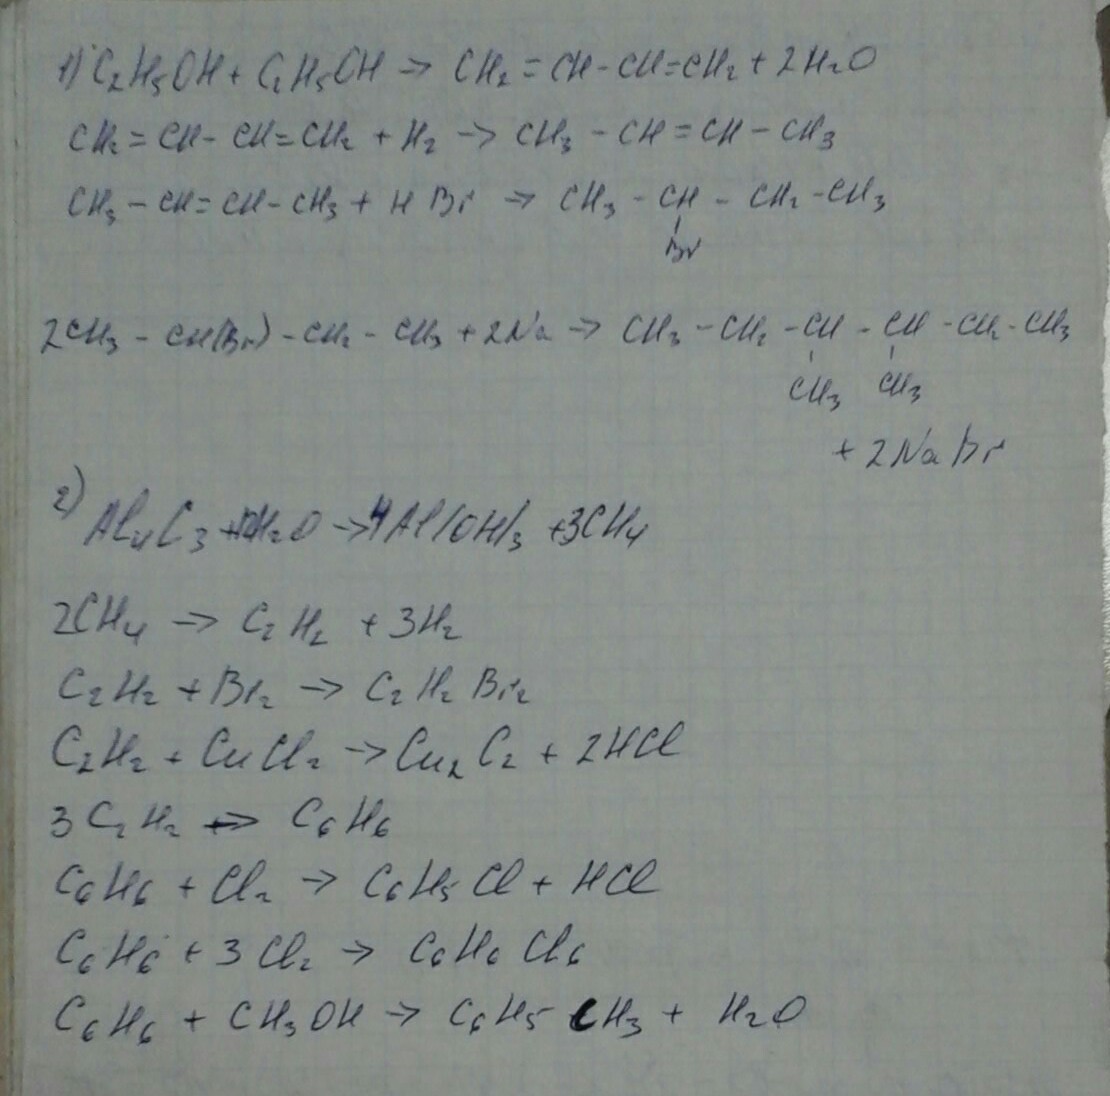 1) C₂H₅OH + C₂H₅OH → CH₂ = CH - CH = CH₂ + 2H₂O
CH₂ = CH - CH = CH₂ + H₂ → CH₃ - CH = CH - CH₃
CH₃ - CH = CH - CH₃ + HBr → CH₃ - CH - CH₂ - CH₃
Br
2CH₃ - CH(Br) - CH₂ - CH₃ + 2Na → CH₃ - CH₂ - CH - CH - CH₂ - CH₃
CH₃ CH₃
+ 2NaBr
2) Al₄C₃ + 12H₂O → 4Al(OH)₃ + 3CH₄
2CH₄ → C₂H₂ + 3H₂
C₂H₂ + Br₂ → C₂H₂Br₂
C₂H₂ + CuCl₂ → Cu₂C₂ + 2HCl
3C₂H₂ → C₆H₆
C₆H₆ + Cl₂ → C₆H₅Cl + HCl
C₆H₆ + 3Cl₂ → C₆H₆Cl₆
C₆H₆ + CH₃OH → C₆H₅CH₃ + H₂O